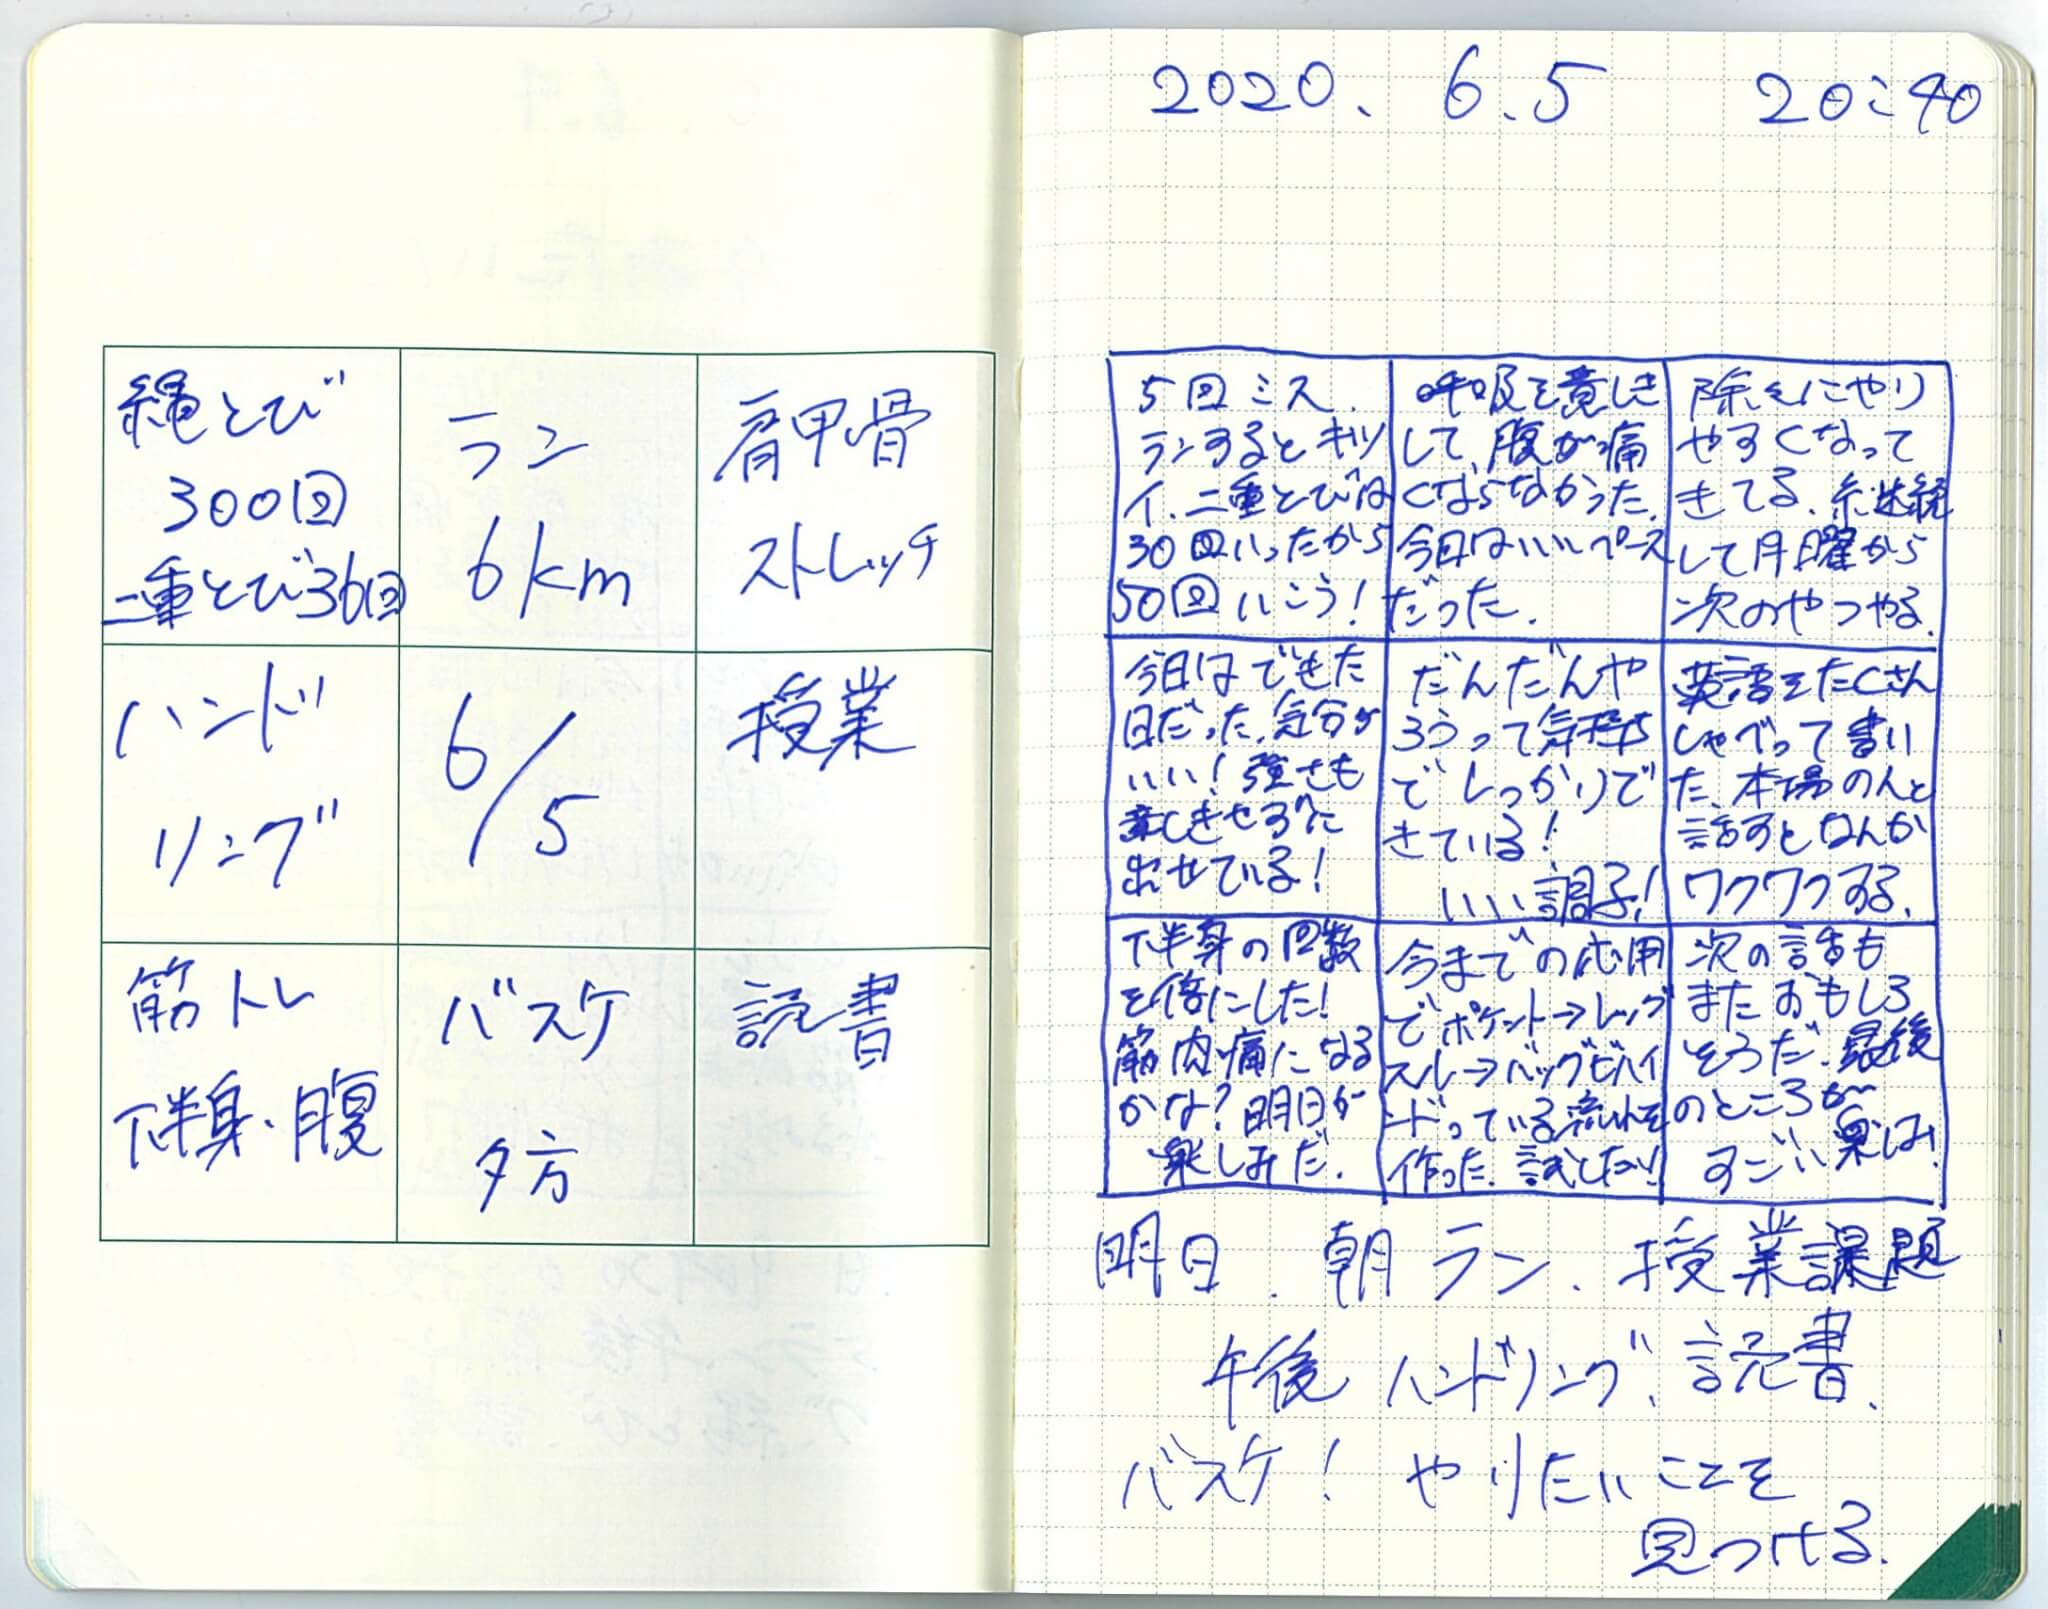 縄とび
300回
二重とび36回
ラン
6km
肩甲骨
ストレッチ
ハンド
リング
6/5
授業
筋トレ
下半身、腹
バスケ
夕方
読書
2020. 6.5 20:40
5回ミス.
ランするとキツ
イ.二重とびは
30回いったから
50回いこう!
呼吸を意しき
して、腹が痛
くならなかった.
今日はいいペース
だった.
除々にやり
やすくなって
きてる.継続
して月曜から
次のやつやる.
今日はできた
日だった.気分が
いい!強さも
出せている!
だんだんや
ろうって気持ち
でしっかりで
きている!
いい調子!
英語をたくさん
しゃべって書い
た.本場の人と
話すとなんか
ワクワクする.
下半身の回数
を倍にした!
筋肉痛になる
かな?明日が
楽しみだ.
今までの応用
でポケット→レッグ
スルー→バックビハイ
ンドっている流れを
作った.試したい!
次の話も
またおもしろ
そうだ.最後
のところが
すごい楽しみ!
明日.朝ラン.授業課題
午後 ハンドリング、読書.
バスケ! やりたいことを
見つける.